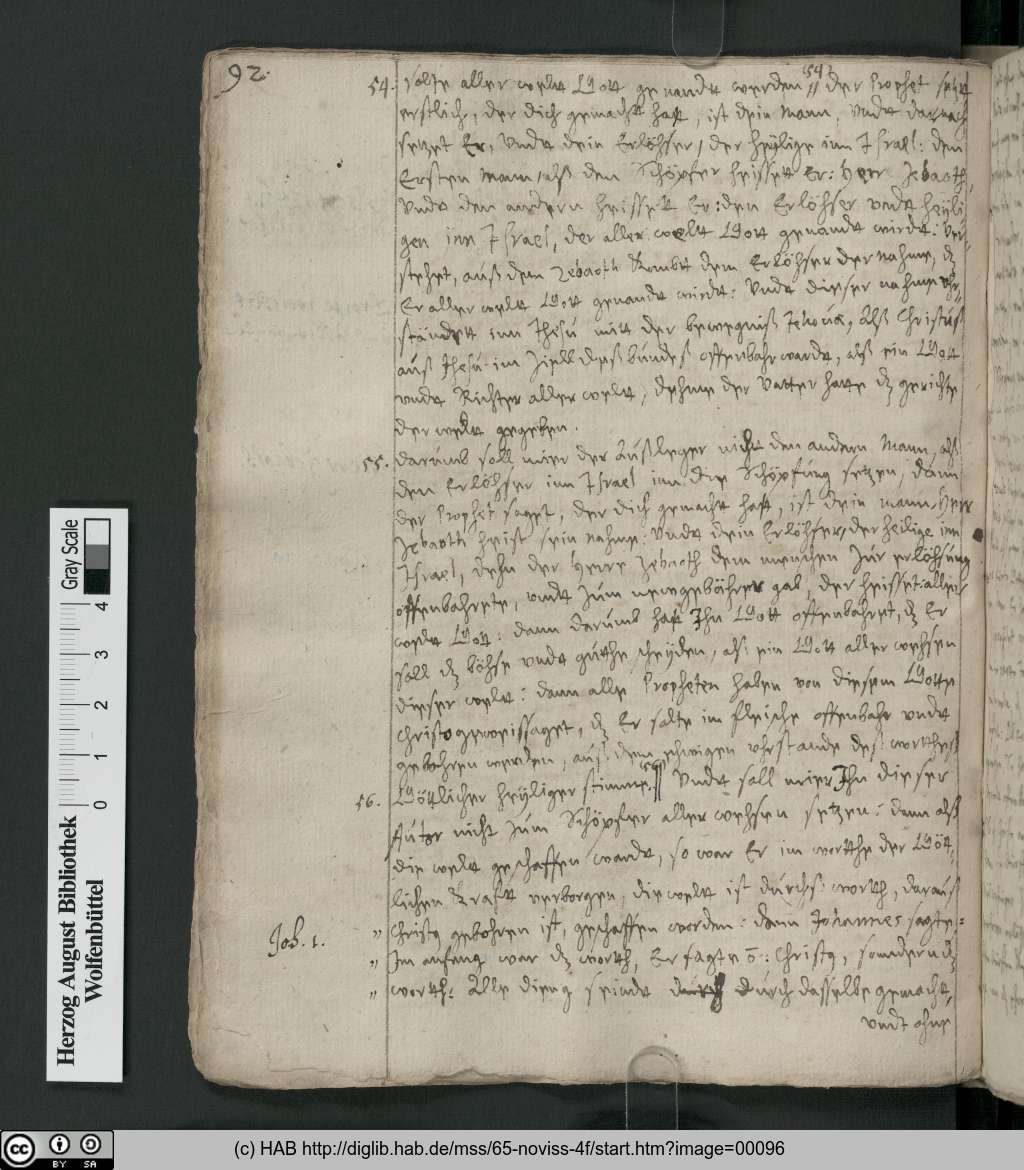 92.
54. solte aller welt Gott genandt werden // der Prophet seit
54.
erstlich, der dich gemacht hatt, ist dein Mann, Undt darnach
setzet Er, Undt dein Erlöhser, der heÿlige inn Israel: den
Ersten Mann, alß den Schöpfer heissett Er: Herr Zebaoth,
Undt den andern heissett Er: den Erlöhser undt heÿli
gen inn Israel, der aller welt Gott genandt wirdt: Ver-
stehet, auß dem Zebaoth kombt dem Erlöhser der nahme, dz
Er aller welt Gott genandt wirdt: Undt dieser nahme uhr-
ständett inn Jhesu mit der bewegniß Jehova, Alß Christus
auß Jhesu im Ziell deß bundeß offenbahr wardt, alß ein Gott
undt Richter aller welt, dehme der Vatter hatte dz gerichte
der welt gegeben.
55. Darumb soll mier der Außleger nicht den andern Mann, alß
den Erlöhser inn Israel inn die Schöpfung setzen, dann
der Prophet saget, der dich gemacht hatt, ist dein mann, Herr
Zebaoth heist sein nahme: Undt dein Erlöhser, der heilige inn
Israel, dehn der Herre Zebaoth dem menschen zur erlöhsung
offenbahrete, undt zum newgebährer gab, der heisset: aller
welt Gott: dann darumb hatt Ihn Gott offenbahret, dz Er
soll dz böhse undt guthe scheÿden, alß ein Gott aller wehsen
dieser welt: dann alle Propheten haben von diesem Gotte
Christo geweissaget, dz Er solte im fleische offenbahr undt
gebohren werden, auß dem ehwigen uhrstande deß worttheß
56. Göttlicher heÿliger stimme. // Undt soll mier Ihn dieser
56.
Autor nicht zum Schöpfer aller wehsen setzen: dann alß
die welt geschaffen wardt, so war Er im wortthe der Gött-
lichen Krafft verborgen, die welt ist durchs wortth, darauß
Joh. 1.
" Christg gebohren ist, geschaffen worden: dann Johannes sagte:
" Im anfang war dz wortth, Er sagte ō: Christg, sondern dz
" wortth: Alle dieng seindt durch durch dasselbe gemacht,
undt ohne
Gray Scale
0 1 2 3 4
Herzog August Bibliothek
Wolfenbüttel
cc BY SA
(c) HAB http://diglib.hab.de/mss/65-noviss-4f/start.htm?image=00096